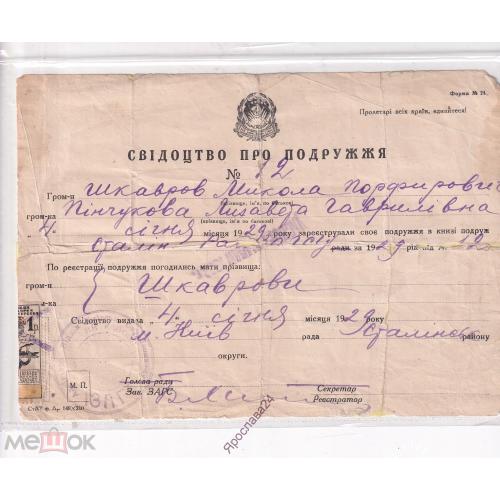 Форма № 24.
Пролетарі всіх країн, єднайтеся!
СВІДОЦТВО ПРО ПОДРУЖЖЯ
№ 12
Гром-н Шкавров Микола Порфирович
(прізвище, ім'я, по батькові)
гром-ка Пінчукова Лизавета Гаврилівна
(прізвище, ім'я по батькові)
4 січня місяця 1929 року зареєстрували своє подружжя в книзі подруж
Сталін ради за 1929 рік під № 12
По реєстрації, подружжя погодились мати прізвища:
Гром-н
гр-ка Шкаврови
Свідоцтво видала 4 січня місяця 1929 року
м. Київ рада Сталінськ району
округи.
М. П.
Голова ради
Зав. ЗАГС
Секретар
Реєстратор
Ярослава24
мешок